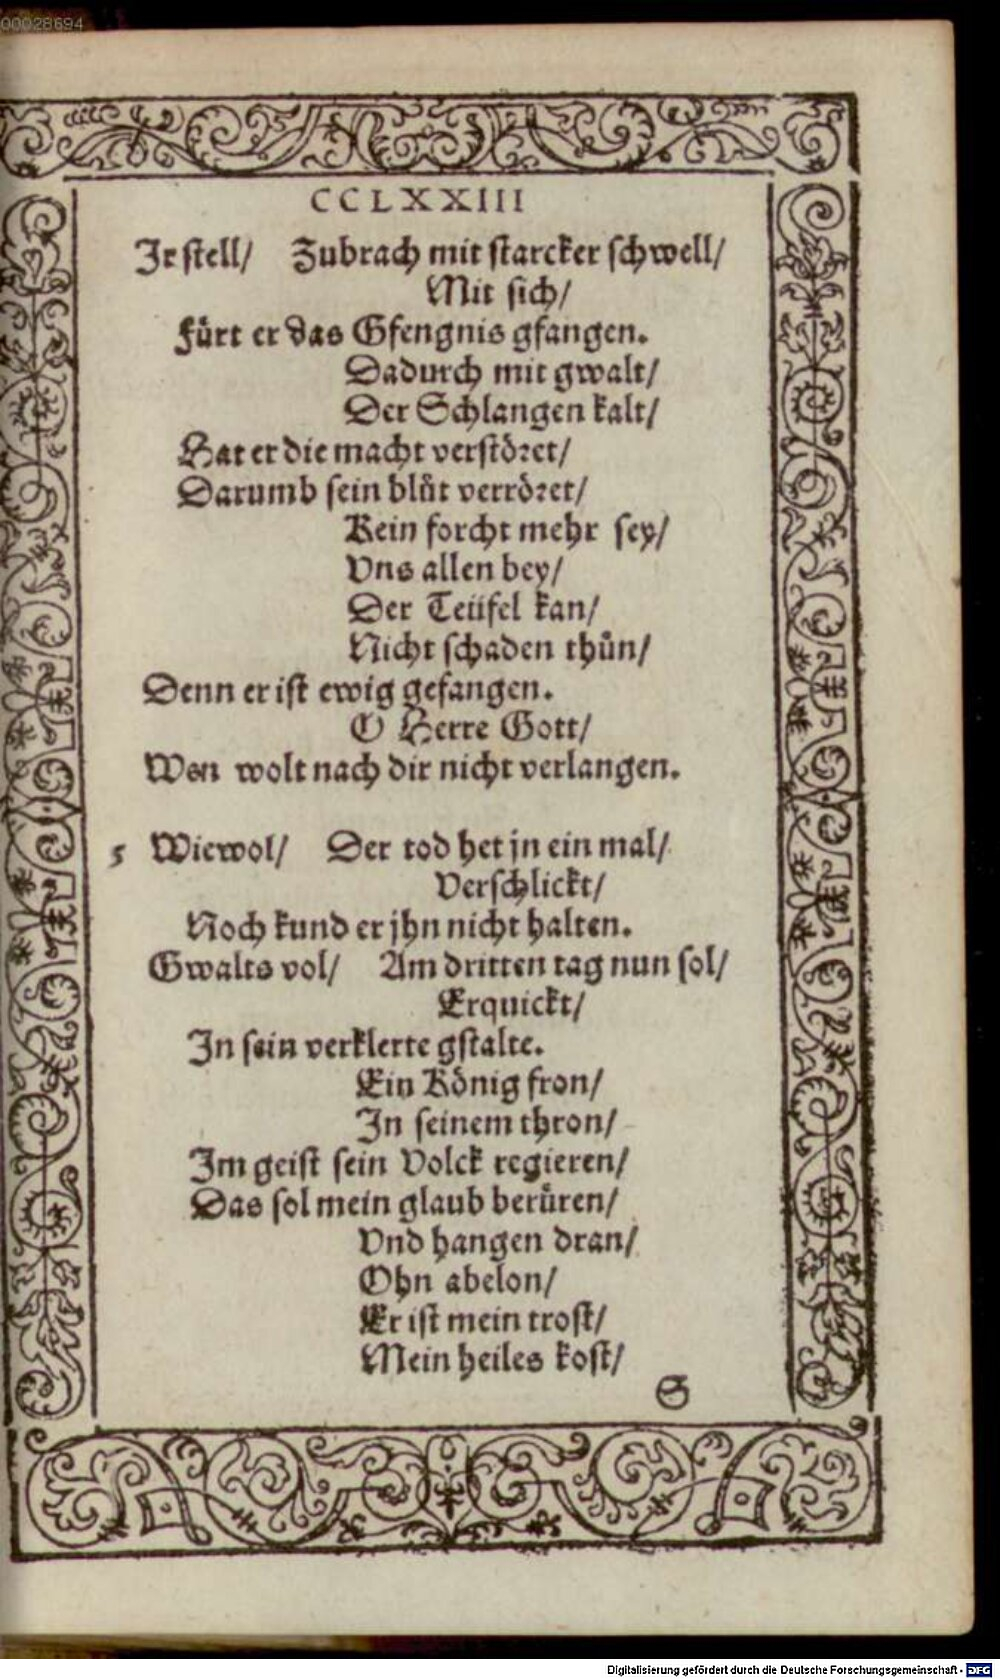 00028694
CCLXXIII
Jr stell/ Zubrach mit starcker schwell/
Mit sich/
Fürt er das Gfengnis gfangen.
Dadurch mit gwalt/
Der Schlangen kalt/
Hat er die macht verstöret/
Darumb sein blůt verröret/
Kein forcht mehr sey/
Vns allen bey/
Der Teüfel kan/
Nicht schaden thůn/
Denn er ist ewig gefangen.
O Herre Gott/
Wen wolt nach dir nicht verlangen.
5 Wiewol/ Der tod het jn ein mal/
Verschlickt/
Noch kund er jhn nicht halten.
Gwalts vol/ Am dritten tag nun sol/
Erquickt/
In sein verklerte gstalte.
Ein König fron/
In seinem thron/
Im geist sein Volck regieren/
Das sol mein glaub berüren/
Vnd hangen dran/
Ohn abelon/
Er ist mein trost/
Mein heiles kost/
S
Digitalisierung gefördert durch die Deutsche Forschungsgemeinschaft - DFG